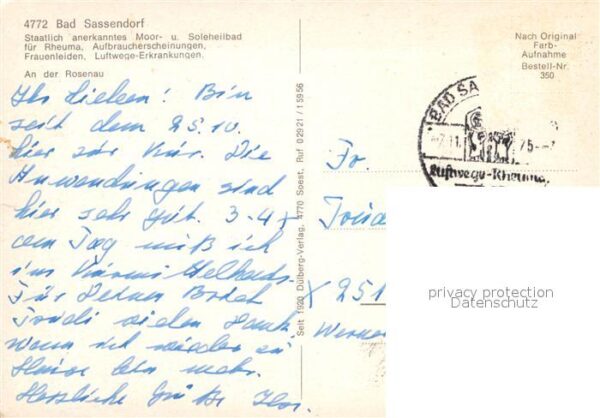 4772 Bad Sassendorf
Staatlich anerkanntes Moor- u. Soleheilbad
für Rheuma, Aufbraucherscheinungen,
Frauenleiden, Luftwege-Erkrankungen.
An der Rosenau
Nach Original
Farb-
Aufnahme
Bestell-Nr.
350
Ihr Lieben! Bin
seit dem 25.10.
hier zur Kur. Die
Anwendungen sind
hier sehr gut. 3-4 x
am Tag muß ich
ins
Für Deinen Brief
Trudi vielen Dank
wenn ich wieder zu
Hause bin mehr.
Herzliche Grüße
Seit 1920 Dülberg-Verlag, 4770 Soest, Ruf 0 29 21 / 1 59 56
BAD SA
-7.11. 75--
Luftwege-Rheuma,
Fr.
251
Werner
privacy protection
Datenschutz